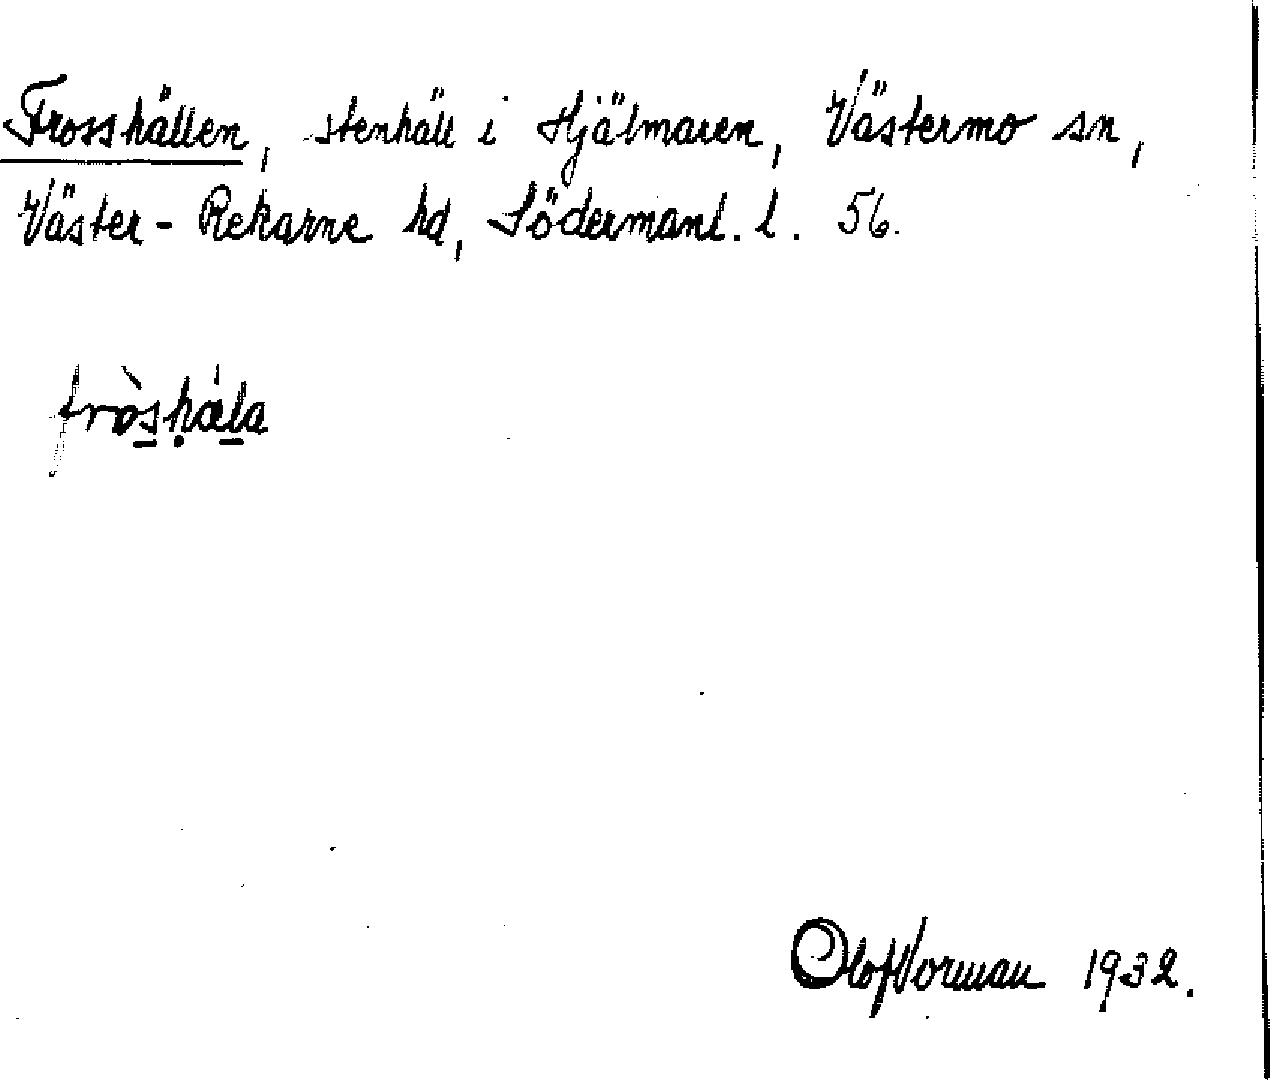 Frosshällen, stenhäll i Hjälmaren, Västermo sn,
Väster-Rekarne hd, Södermanl. l. 56.
fròshæ̍la
Olof Norman 1932.